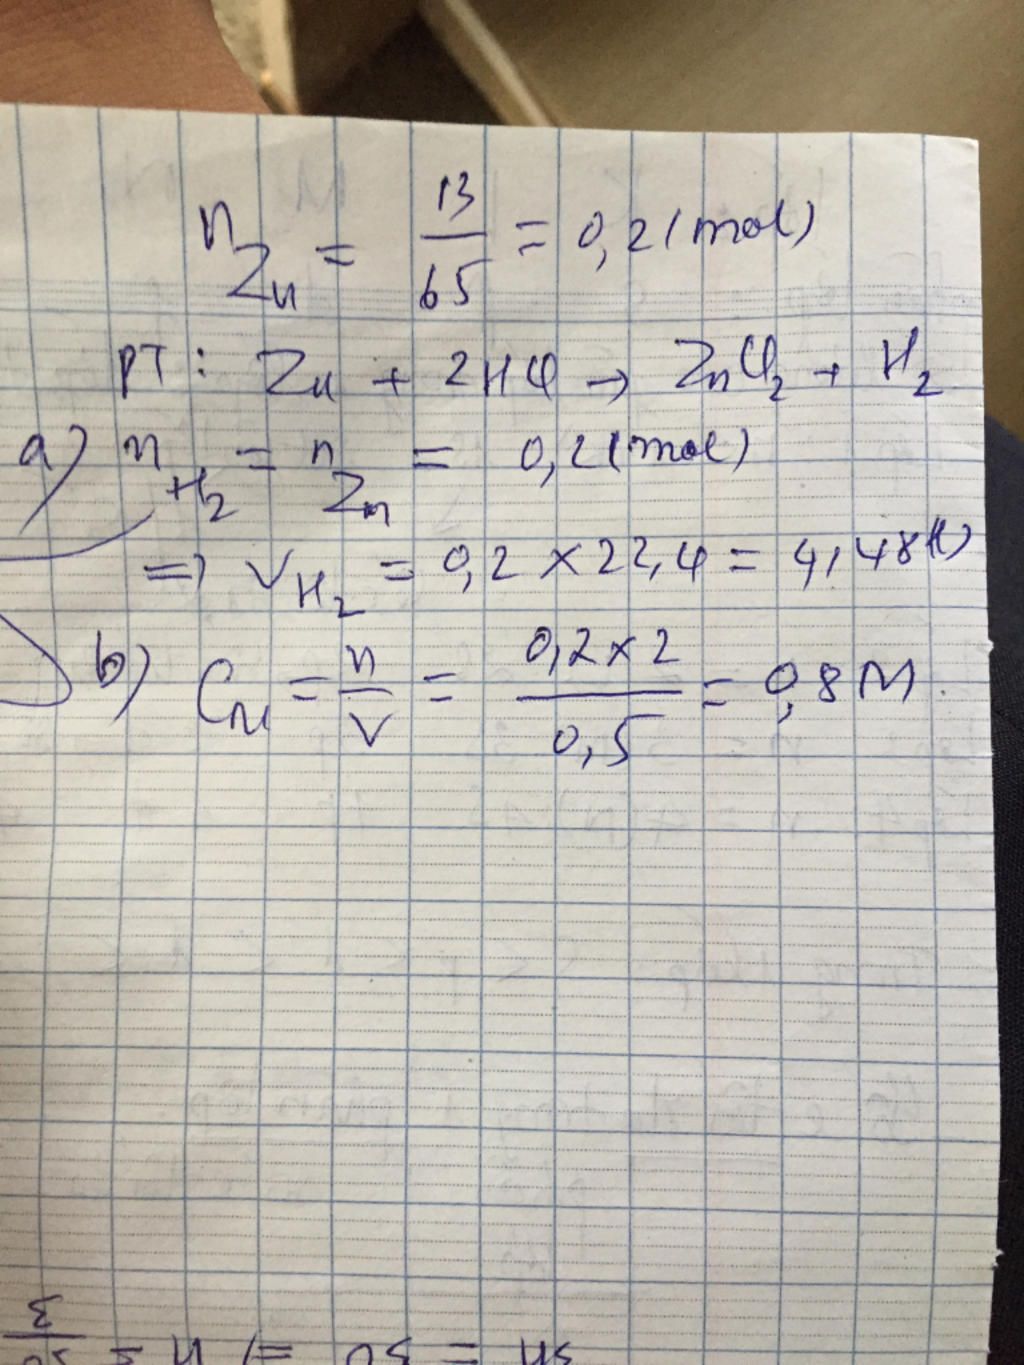 n_Zn = 13/65 = 0,2 (mol)
PT: Zn + 2HCl → ZnCl₂ + H₂
a) n_H₂ = n_Zn = 0,2 (mol)
=> V_H₂ = 0,2 × 22,4 = 4,48 (l)
b) C_M = n/V = 0,2 × 2/0,5 = 0,8 M